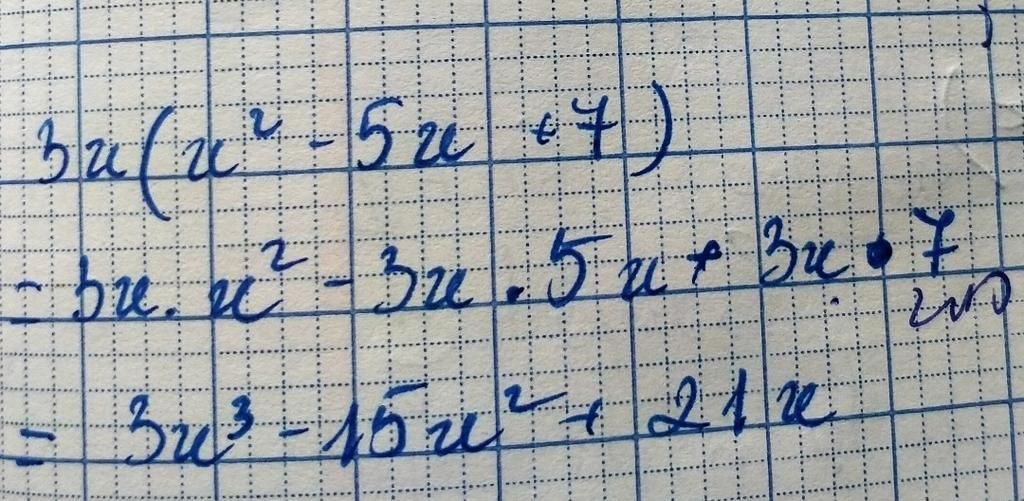 3x(x² - 5x + 7)
= 3x . x² - 3x . 5x + 3x • 7
= 3x³ - 15x² + 21x